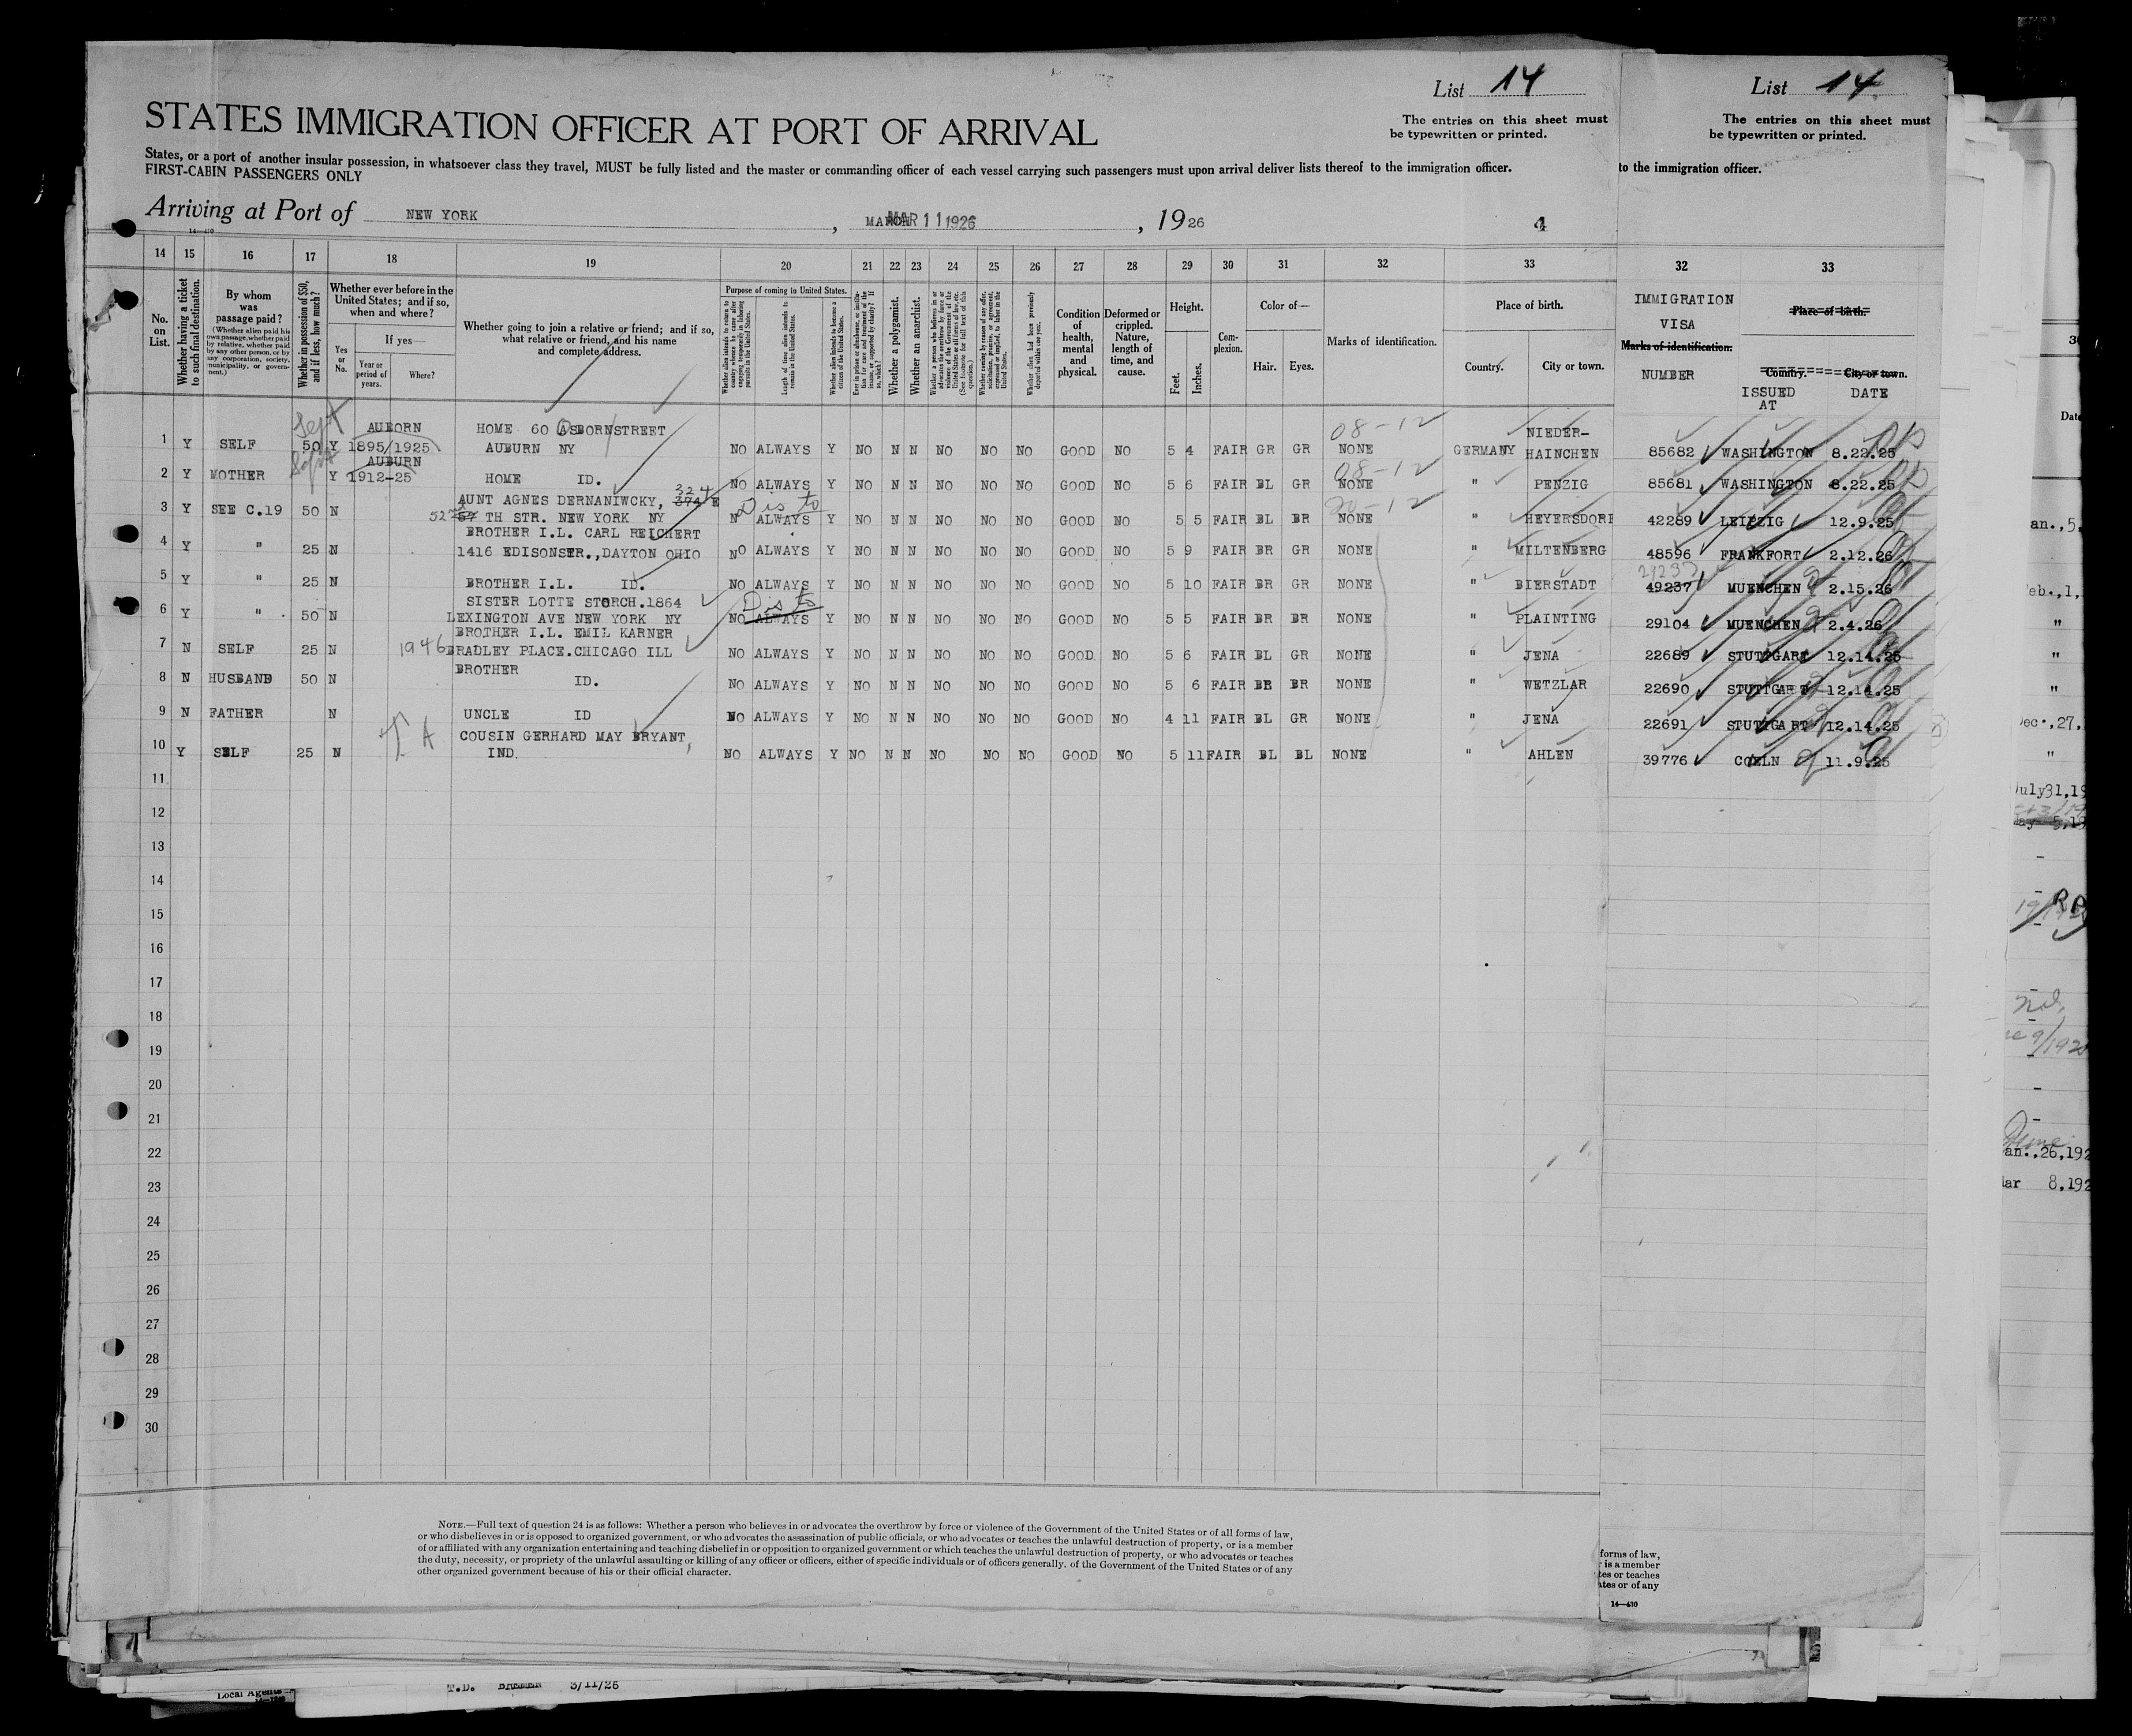 List 14
The entries on this sheet must
be typewritten or printed.
List 14.
The entries on this sheet must
be typewritten or printed.
STATES IMMIGRATION OFFICER AT PORT OF ARRIVAL
States, or a port of another insular possession, in whatsoever class they travel, MUST be fully listed and the master or commanding officer of each vessel carrying such passengers must upon arrival deliver lists thereof to the immigration officer.
to the immigration officer.
FIRST-CABIN PASSENGERS ONLY
Arriving at Port of NEW YORK, MAR 11 1926, 1926
4
14—430
14 15 16 17 18 19 20 21 22 23 24 25 26 27 28 29 30 31 32 33 32 33
No. on List.
Whether having a ticket to such final destination.
By whom was passage paid?
(Whether alien paid his own passage, whether paid by relative, whether paid by any other person, or by any corporation, society, municipality, or government.)
Whether in possession of $50, and if less, how much?
Whether ever before in the United States; and if so, when and where?
Yes or No.
If yes—
Year or period of years.
Where?
Whether going to join a relative or friend; and if so, what relative or friend, and his name and complete address.
Purpose of coming to United States.
Whether alien intends to return to country whence he came after engaging temporarily in laboring pursuits in the United States.
Length of time alien intends to remain in the United States.
Whether alien intends to become a citizen of the United States.
Whether a polygamist.
Whether an anarchist.
Condition of health, mental and physical.
Deformed or crippled. Nature, length of time, and cause.
Height.
Feet.
Inches.
Complexion.
Color of—
Hair.
Eyes.
Marks of identification.
Place of birth.
Country.
City or town.
IMMIGRATION
VISA
Marks of identification.
NUMBER
Place of birth.
Country. City or town.
ISSUED AT
DATE
1 Y SELF 50 Y 1895/1925 AUBORN HOME 60 OSBORNSTREET
AUBURN NY NO ALWAYS Y NO N N NO NO NO GOOD NO 5 4 FAIR GR GR NONE 08-12 GERMANY NIEDER-
HAINCHEN 85682 WASHINGTON 8.22.25
2 Y MOTHER Y 1912-25 AUBURN HOME ID. NO ALWAYS Y NO N N NO NO NO GOOD NO 5 6 FAIR BL GR NONE 08-12 " PENZIG 85681 WASHINGTON 8.22.25
3 Y SEE C.19 50 N AUNT AGNES DERNANIWCKY, 324 E
52nd TH STR. NEW YORK NY N ALWAYS Dis to Y NO N N NO NO NO GOOD NO 5 5 FAIR BL BR NONE 20-12 " HEYERSDORF 42289 LEIPZIG 12.9.25
4 Y " 25 N BROTHER I.L. CARL REICHERT
1416 EDISONSTR., DAYTON OHIO NO ALWAYS Y NO N N NO NO NO GOOD NO 5 9 FAIR BR GR NONE " MILTENBERG 48596 FRANKFORT 2.12.26
5 Y " 25 N BROTHER I.L. ID. NO ALWAYS Y NO N N NO NO NO GOOD NO 5 10 FAIR BR GR NONE " BIERSTADT 49237 MUENCHEN 2.15.26
6 Y " 50 N SISTER LOTTE STORCH.1864
LEXINGTON AVE NEW YORK NY NO ALWAYS Dis to Y NO N N NO NO NO GOOD NO 5 5 FAIR BR BR NONE " PLAINTING 29104 MUENCHEN 2.4.26
7 N SELF 25 N BROTHER I.L. EMIL KARNER
1946 BRADLEY PLACE.CHICAGO ILL NO ALWAYS Y NO N N NO NO NO GOOD NO 5 6 FAIR BL GR NONE " JENA 22689 STUTTGART 12.14.25
8 N HUSBAND 50 N BROTHER
ID. NO ALWAYS Y NO N N NO NO NO GOOD NO 5 6 FAIR BR BR NONE " WETZLAR 22690 STUTTGART 12.14.25
9 N FATHER N UNCLE ID NO ALWAYS Y NO N N NO NO NO GOOD NO 4 11 FAIR BL GR NONE " JENA 22691 STUTTGART 12.14.25
10 Y SELF 25 N COUSIN GERHARD MAY BRYANT,
IND. NO ALWAYS Y NO N N NO NO NO GOOD NO 5 11 FAIR BL BL NONE " AHLEN 39776 COELN 11.9.25
11
12
13
14
15
16
17
18
19
20
21
22
23
24
25
26
27
28
29
30
NOTE.—Full text of question 24 is as follows: Whether a person who believes in or advocates the overthrow by force or violence of the Government of the United States or of all forms of law,
or who disbelieves in or is opposed to organized government, or who advocates the assassination of public officials, or who advocates or teaches the unlawful destruction of property, or is a member
of or affiliated with any organization entertaining and teaching disbelief in or opposition to organized government or which teaches the unlawful destruction of property, or who advocates or teaches
the duty, necessity, or propriety of the unlawful assaulting or killing of any officer or officers, either of specific individuals or of officers generally. of the Government of the United States or of any
other organized government because of his or their official character.
forms of law,
is a member
tes or teaches
ates or of any
14—430
Local Agents
T.D. BREMEN 3/11/26
Date
an.,5,
eb.,1,
"
"
"
ec.,27,
"
uly31,19
an.,26,192
ar 8,192